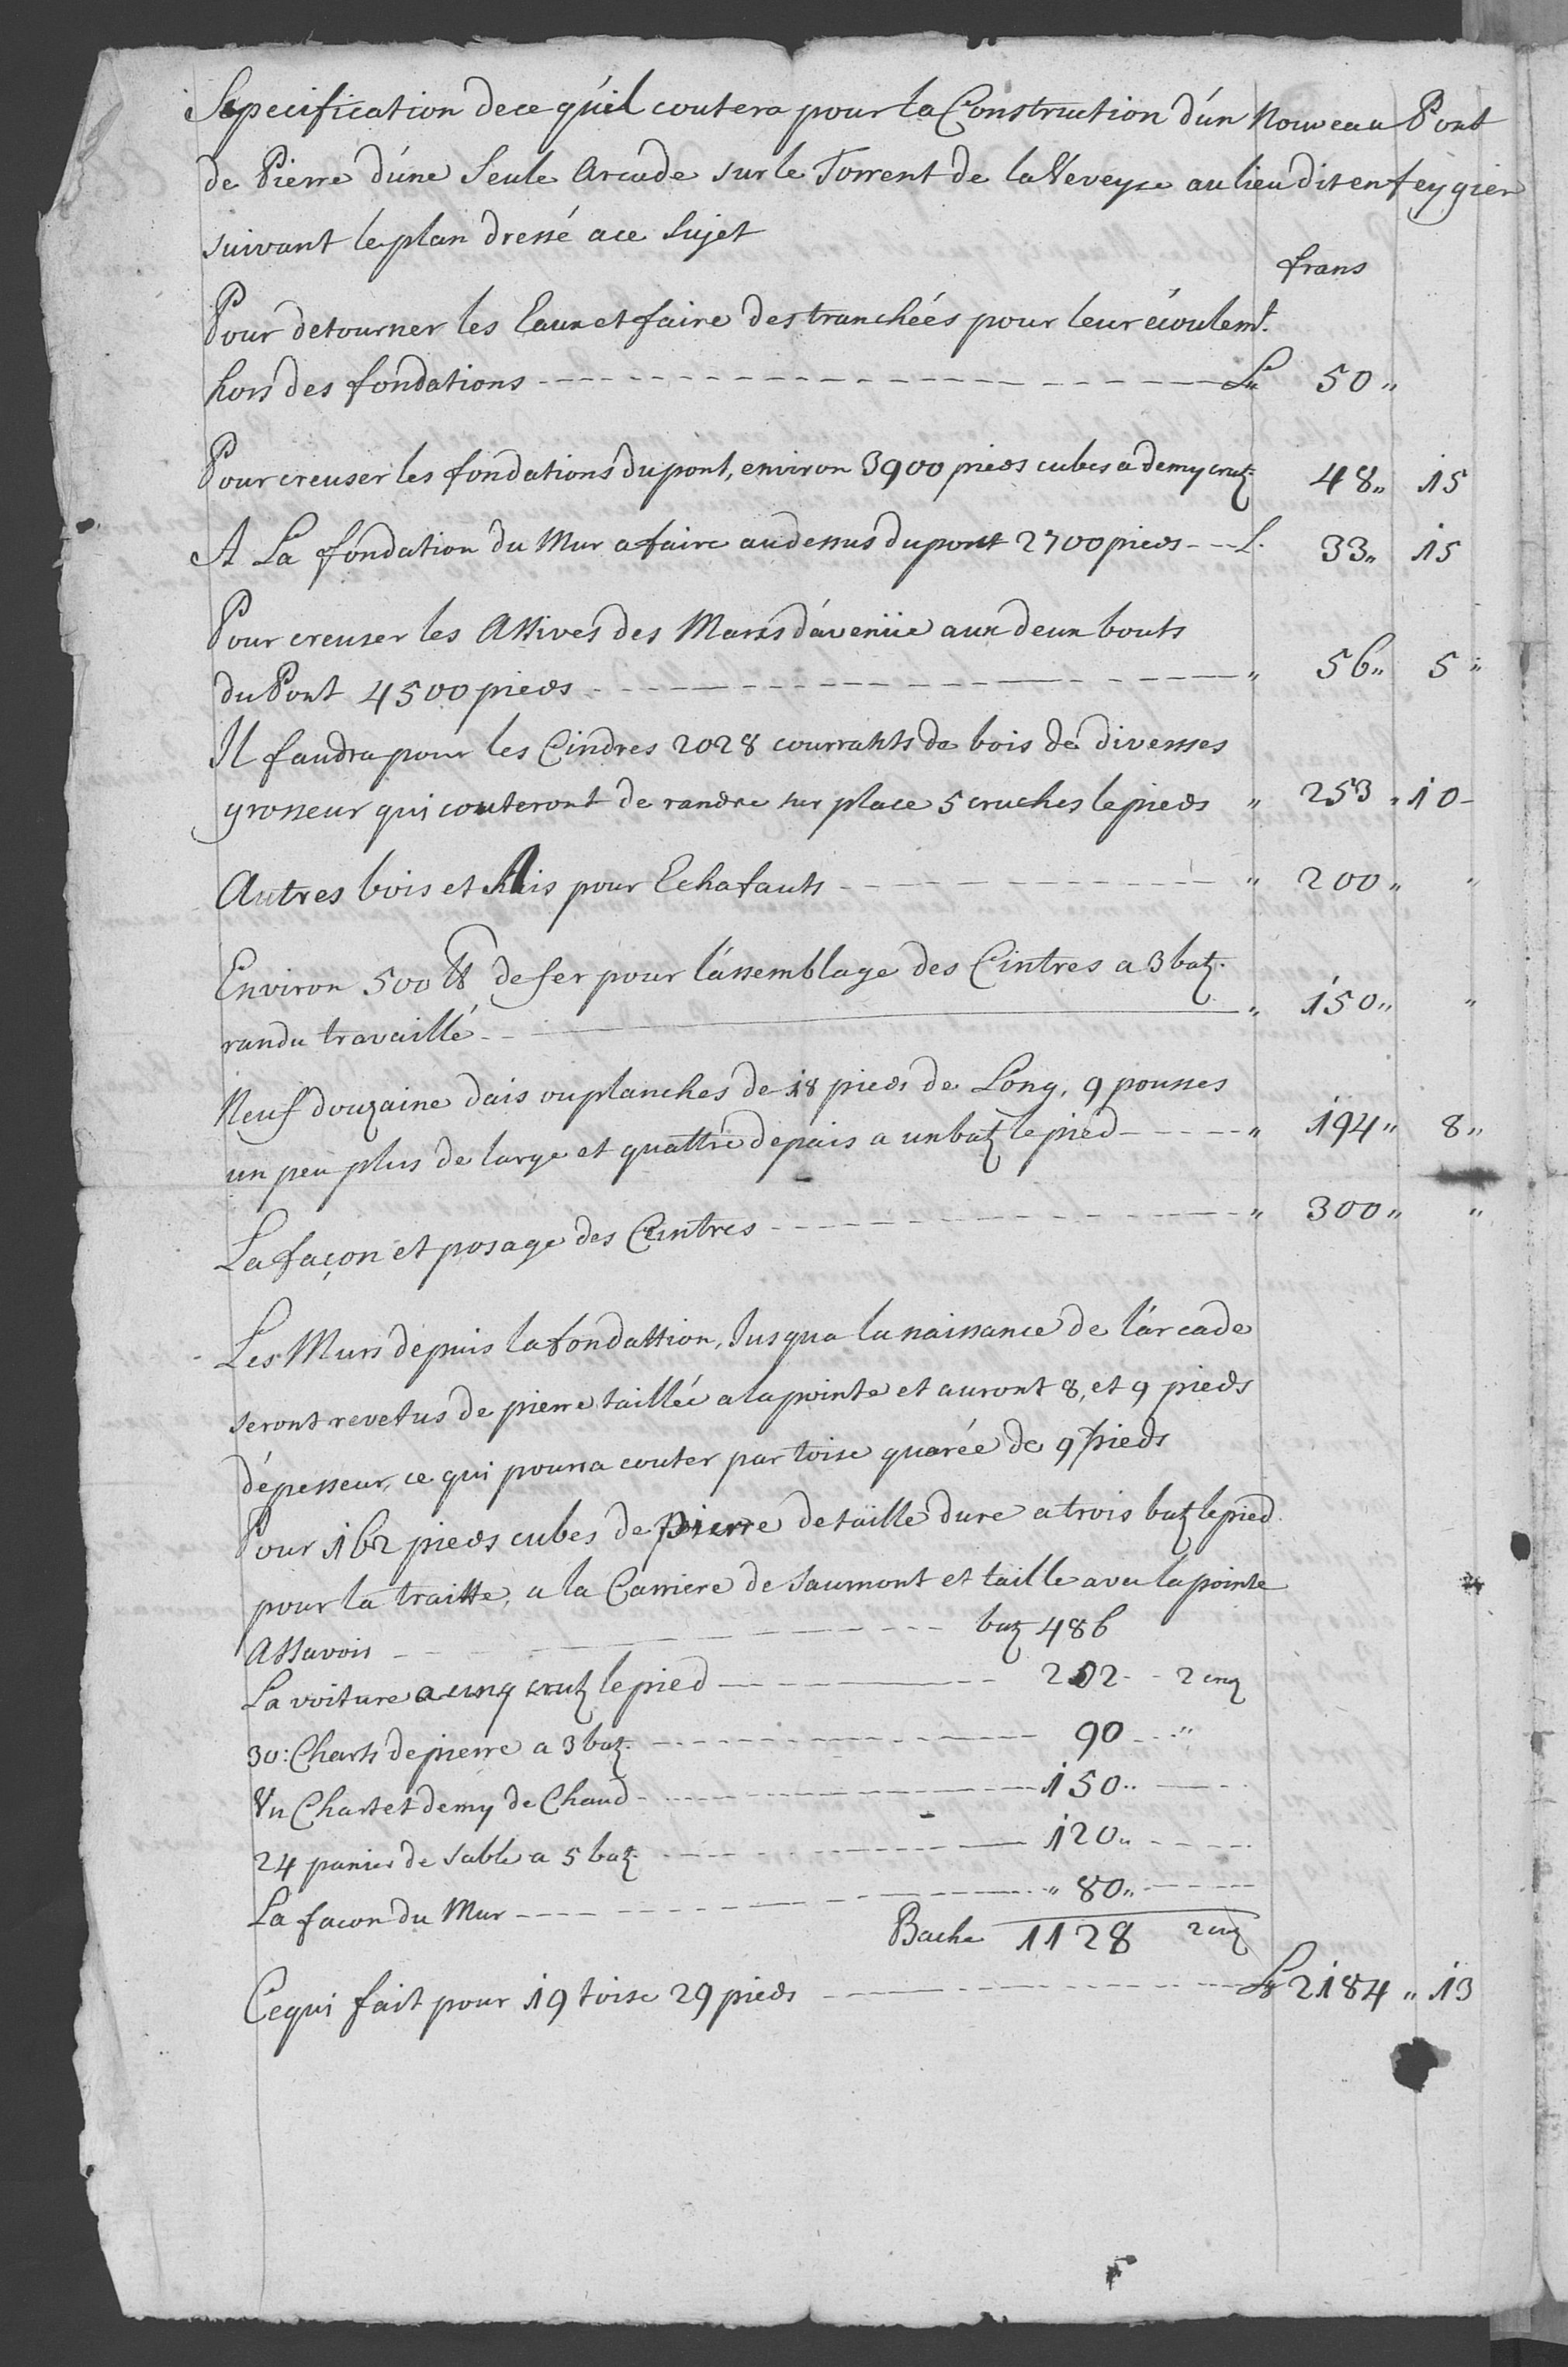 Sspecification de ce qu'il coutera pour la Construction d'un Nouveau Pont
de Pierre d'une Seule Arcade sur le Torrent de la Veveyse au lieu dit en feygier
suivant le plan dressé a ce Sujet
frans
Pour detourner les Eaux et faire des tranchéés pour leur écoulemt.
hors des fondations L 50 "
Pour creuser les fondations du pont, environ 3900 pieds cubes a demy crutz 48 " 15
A La fondation du Mur a faire au dessus du pont 2700 pieds L. 33 " 15
Pour creuser les Assives des Murs d'avenüe aux deux bouts
du Pont 4500 pieds " 56 " 5 "
Il faudra pour les Cindres 2028 courrants de bois de diverses
grosseur qui couteront de randre sur place 5 cruches le pieds " 253 " 10
Autres bois et Ais pour Echafauts " 200 " "
Environ 500 ℔ de fer pour l'assemblage des Cintres a 3 batz.
randu travaillé " 150 " "
Neuf douzaine dais ou planches de 18 pieds de Long, 9 pousses
un peu plus de large et quattre depais a un batz le pied " 194 " 8 "
La façon et posage des Ceintres " 300 " "
Les Murs depuis la fondattion, Jusqua la naissance de l'arcade
seront revetus de pierre taillée a la pointe et auront 8, et 9 pieds
d'épesseur, ce qui pourra couter par toise quarée de 9 pieds
Pour 162 pieds cubes de pierre de taille dure a trois batz le pied
pour la traitte, a la Carriere de Saumont et taille avec la pointe
Assavoir batz 486
La voiture a cinq crutz le pied 202 2 crz
30: Charts de pierre a 3 batz. 90 "
Un Chart et demy de Chaud 150 "
24 panier de Sable a 5 batz 120 "
La facon du Mur " 80 "
Bache 1128 2 crz
Ce qui fait pour 19 toise 29 pieds L 2184 " 13